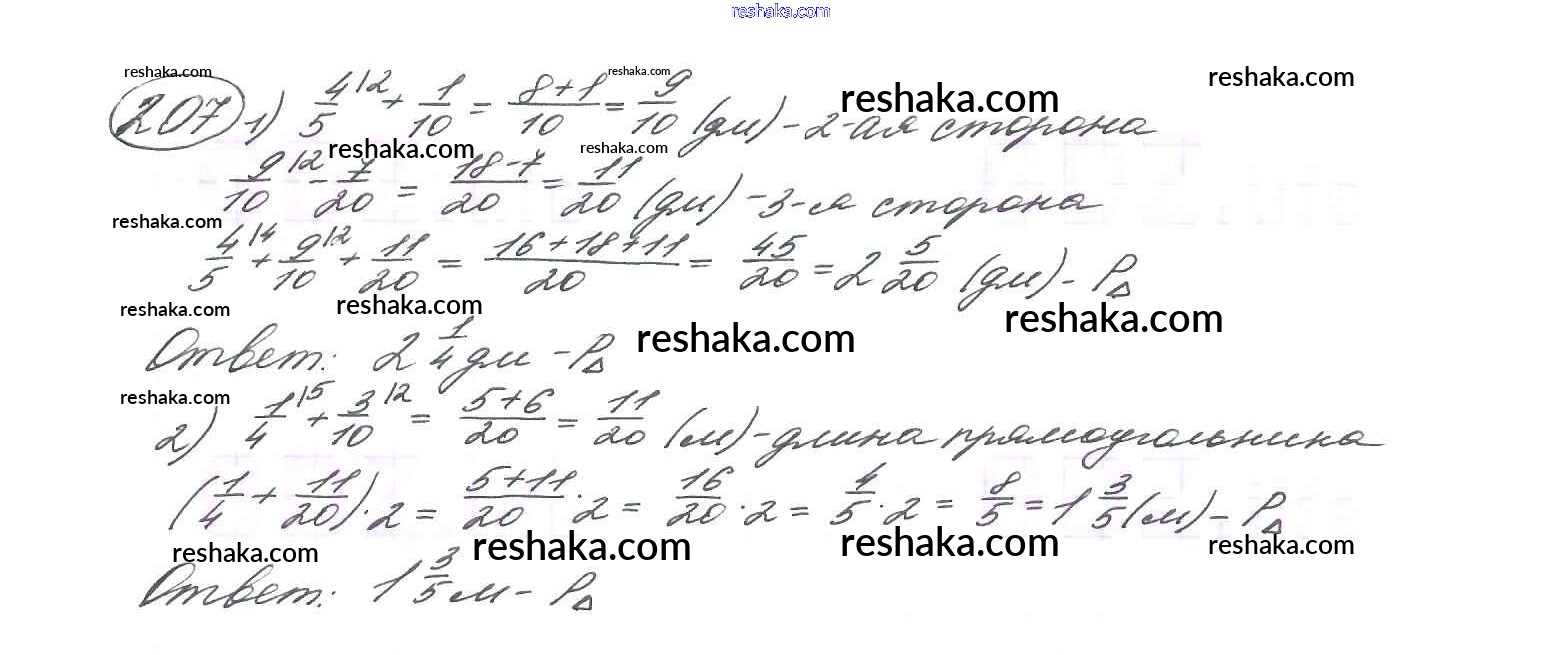 reshaka.com
reshaka.com reshaka.com reshaka.com reshaka.com
207 1) 4/5 |2 + 1/10 = (8+1)/10 = 9/10 (дм) – 2-ая сторона
reshaka.com reshaka.com
9/10 |2 – 7/20 = (18–7)/20 = 11/20 (дм) – 3-я сторона
reshaka.com
4/5 |4 + 9/10 |2 + 11/20 = (16+18+11)/20 = 45/20 = 2 5/20 (дм) – P△
reshaka.com reshaka.com reshaka.com reshaka.com
Ответ: 2 1/4 дм – P△
reshaka.com
2) 1/4 |5 + 3/10 |2 = (5+6)/20 = 11/20 (м) – длина прямоугольника
(1/4 + 11/20) · 2 = (5+11)/20 · 2 = 16/20 · 2 = 4/5 · 2 = 8/5 = 1 3/5 (м) – P△
reshaka.com reshaka.com reshaka.com reshaka.com
Ответ: 1 3/5 м – P△